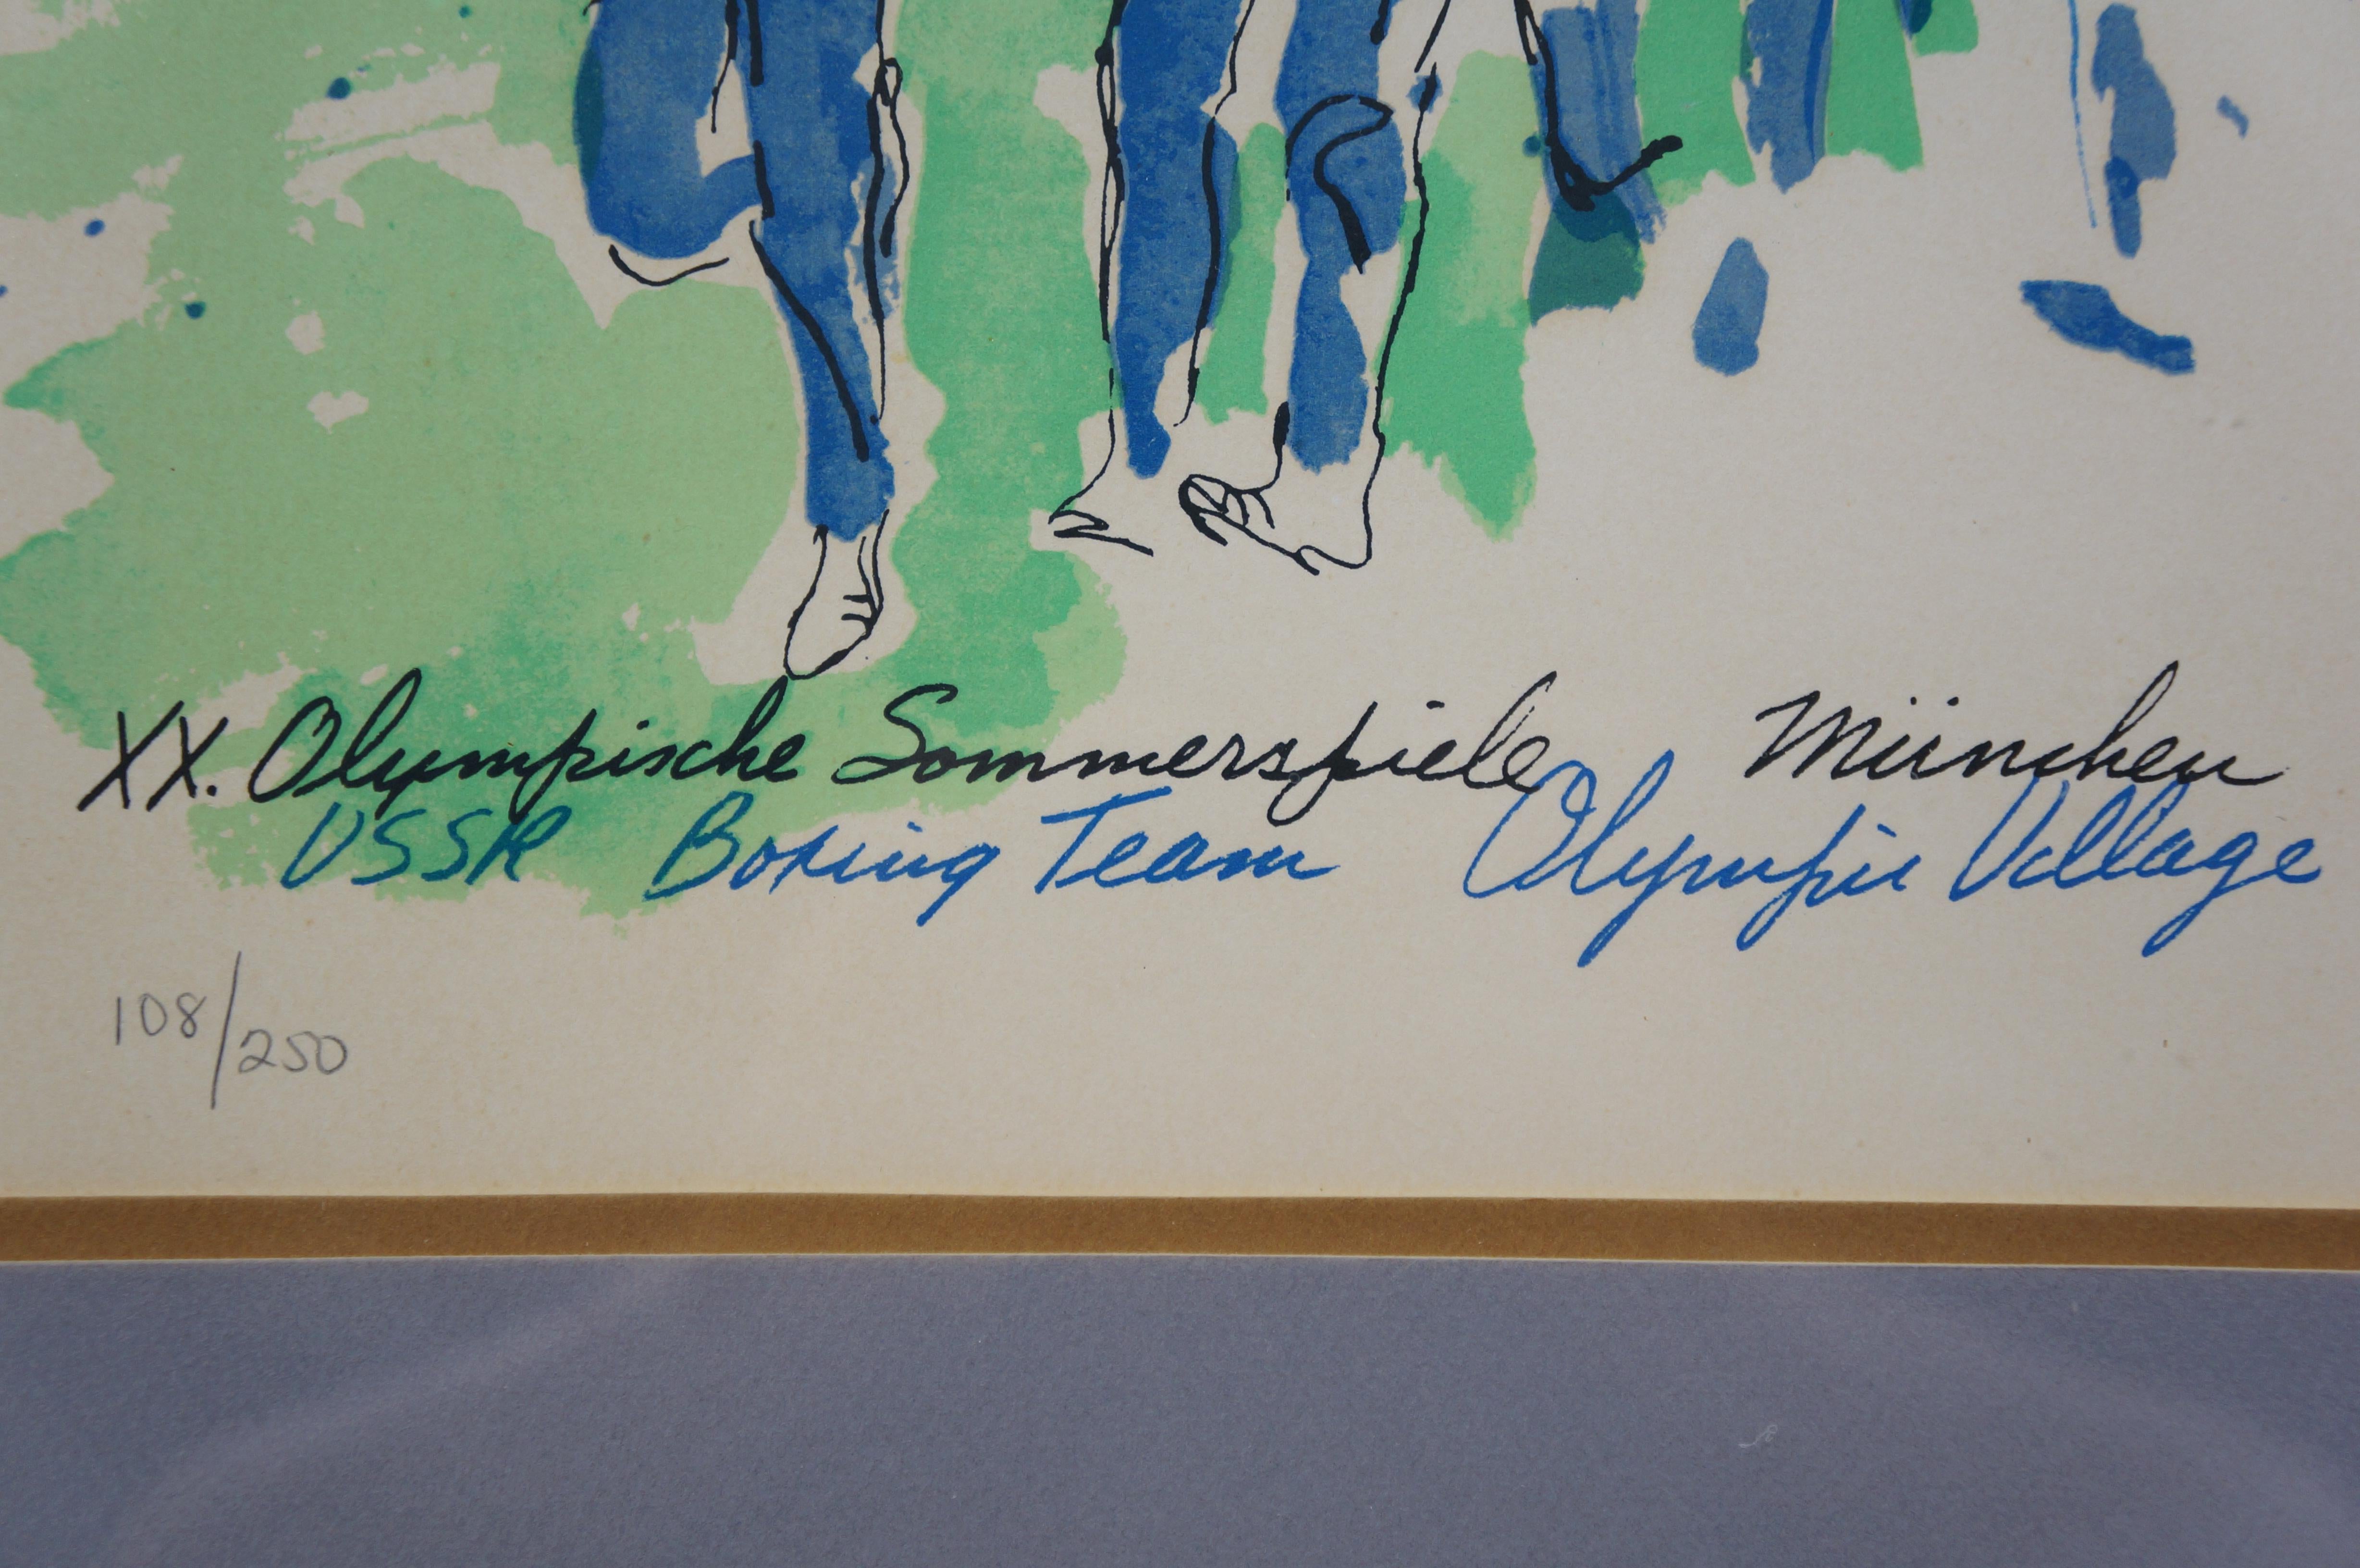 XX. Olympische Sommerspiele München
USSR Boxing Team Olympic Village
108/250